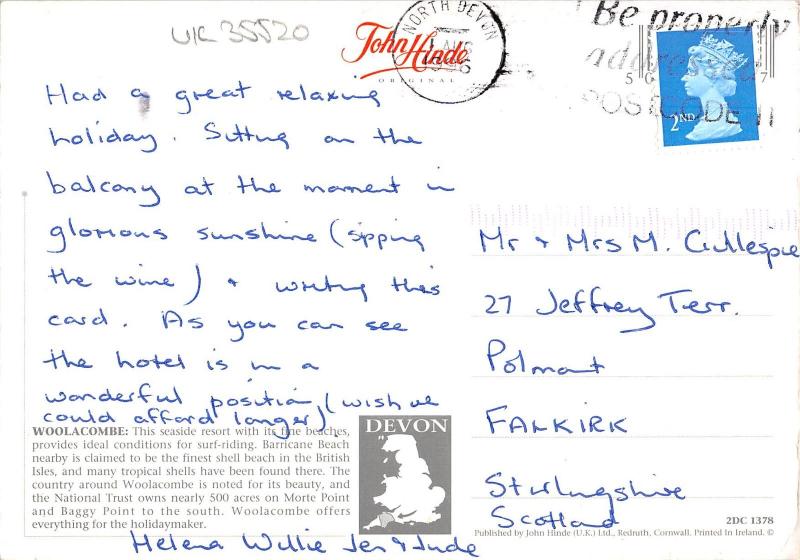 UK 35520
John Hinde
ORIGINAL
NORTH DEVON
Be properly
addressed
POSTCODE IT
2ND
Had a great relaxing
holiday. Sitting on the
balcony at the moment in
glorious sunshine (sipping
the wine) + writing this
card. As you can see
the hotel is in a
wonderful position (wish we
could afford longer)
Helena Willie Jen & Jude
Mr + Mrs M. Gillespie
27 Jeffrey Terr.
Polmont
FALKIRK
Stirlingshire
Scotland
WOOLACOMBE: This seaside resort with its fine beaches,
provides ideal conditions for surf-riding. Barricane Beach
nearby is claimed to be the finest shell beach in the British
Isles, and many tropical shells have been found there. The
country around Woolacombe is noted for its beauty, and
the National Trust owns nearly 500 acres on Morte Point
and Baggy Point to the south. Woolacombe offers
everything for the holidaymaker.
DEVON
2DC 1378
Published by John Hinde (U.K.) Ltd., Redruth, Cornwall. Printed In Ireland. ©